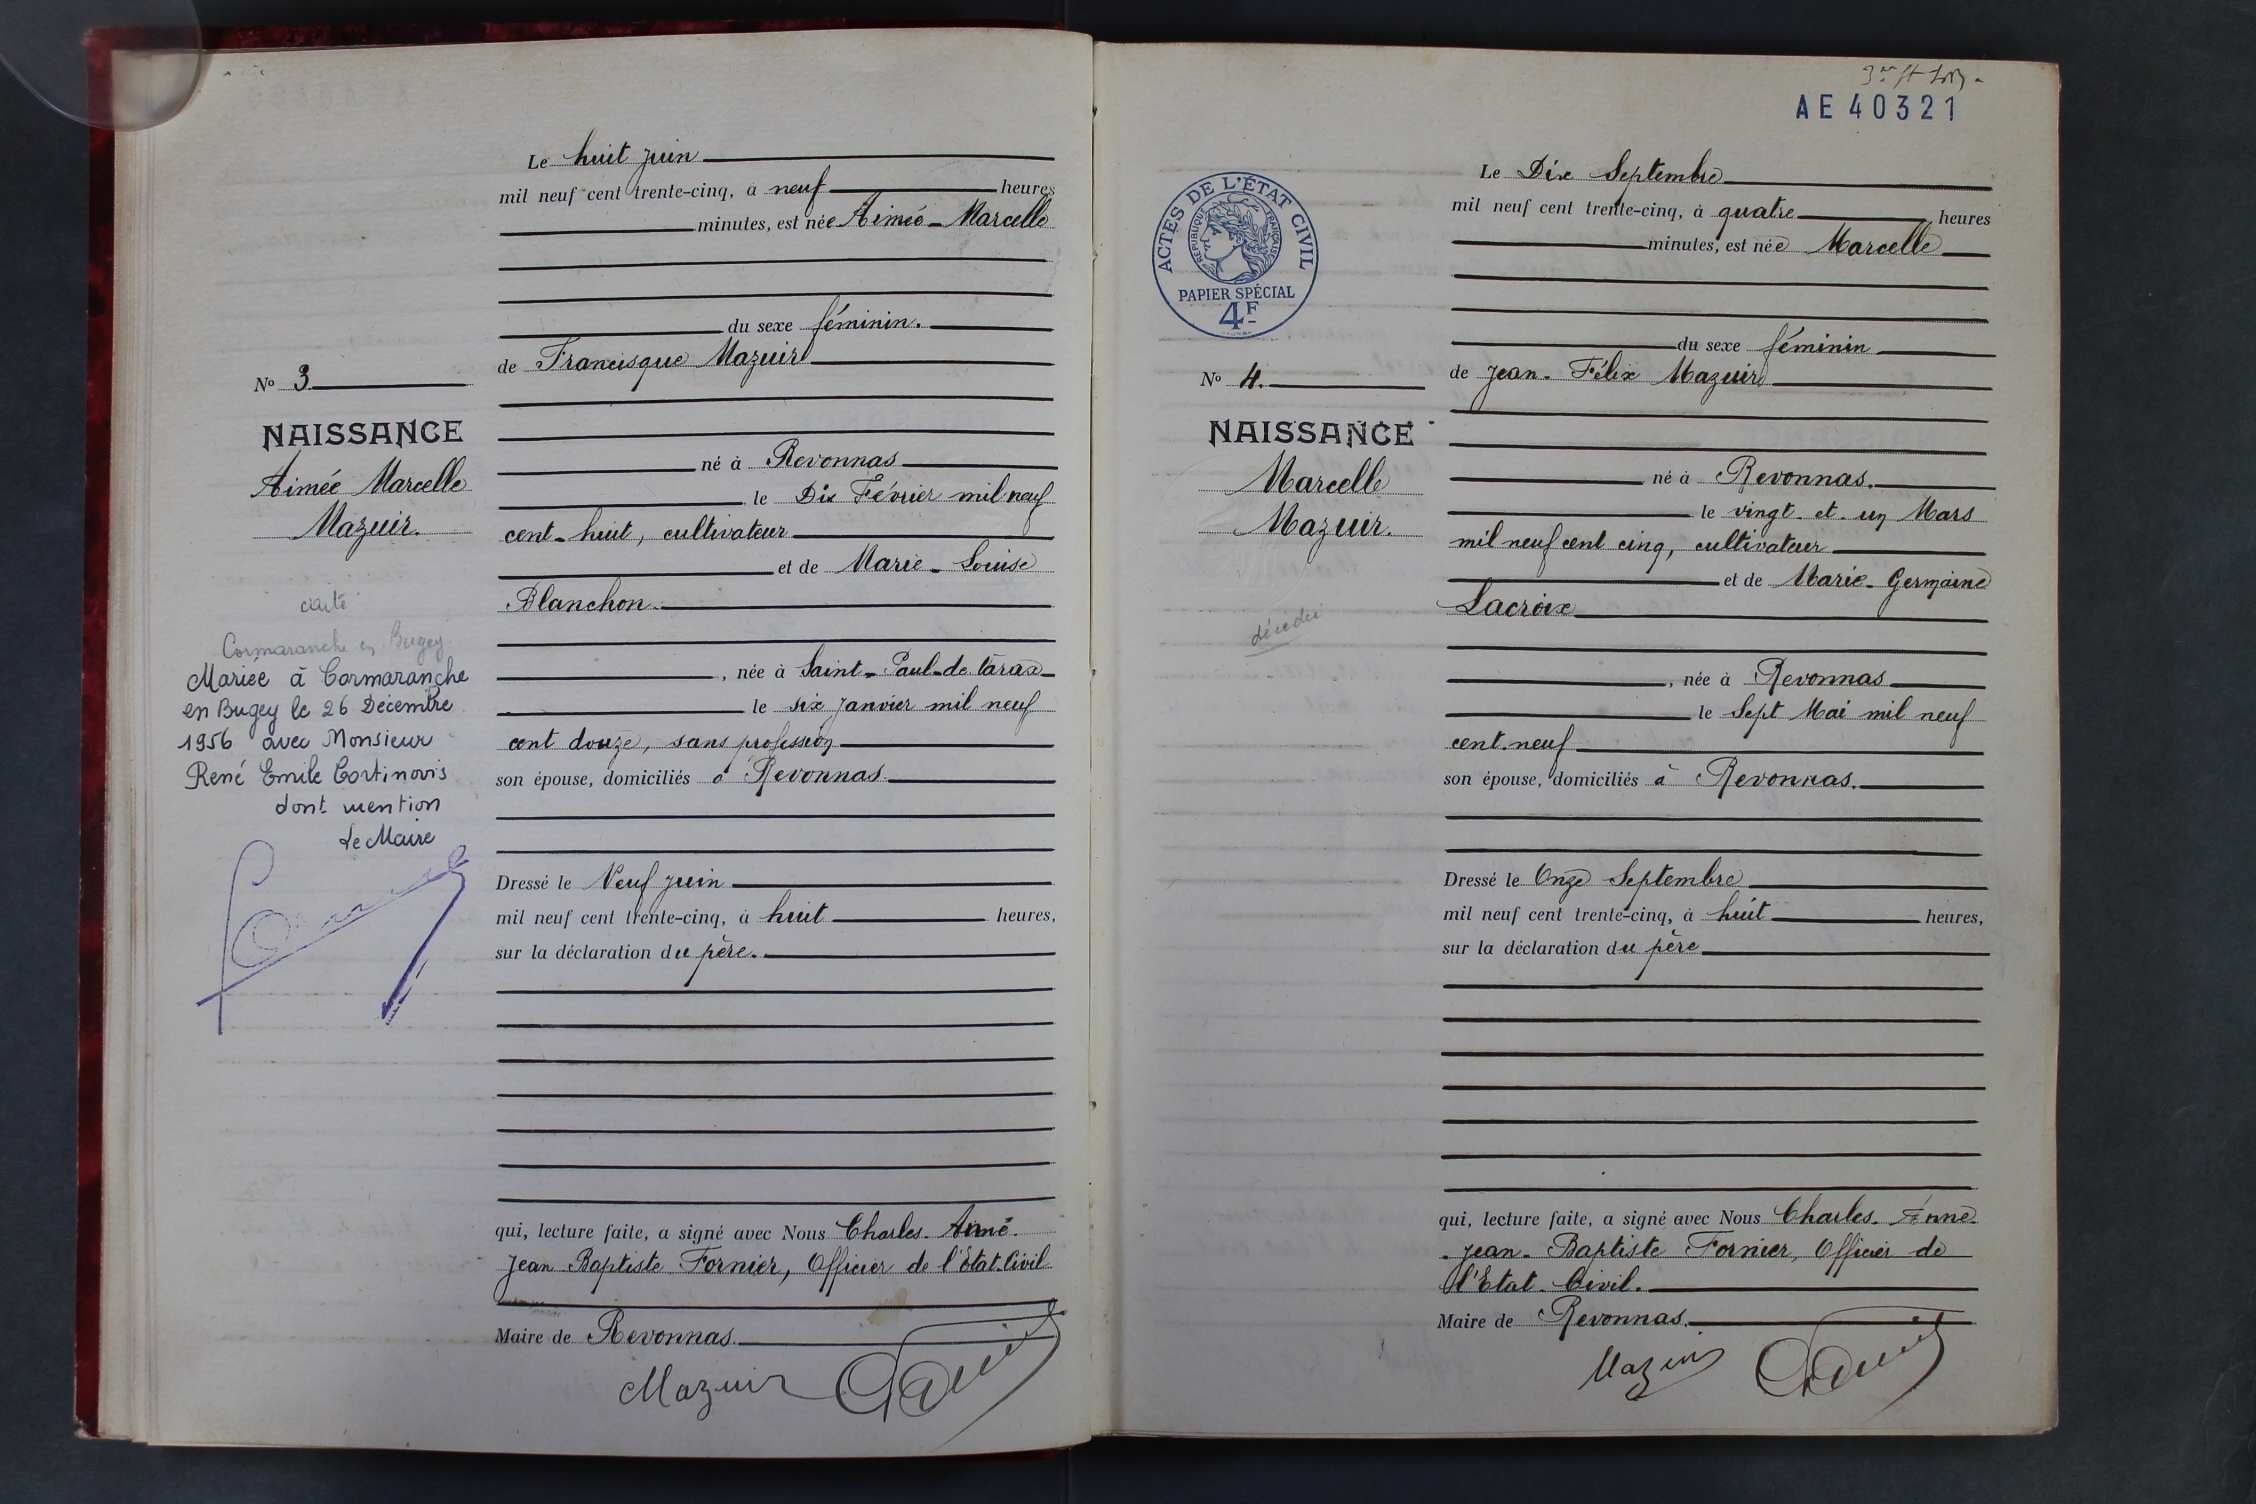 Le huit juin
mil neuf cent trente-cinq, à neuf heures
minutes, est née Aimée-Marcelle
du sexe féminin.
de Francisque Mazuir
No 3
NAISSANCE
Aimée Marcelle
Mazuir.
né à Revonnas
le Dix Février mil neuf
cent-huit, cultivateur
et de Marie-Louise
Blanchon.
, née à Saint-Paul-de-Varax
le six janvier mil neuf
cent douze, sans profession
son épouse, domiciliés à Revonnas.
carte
Cormaranche en Bugey
Mariée à Cormaranche
en Bugey le 26 Décembre
1956 avec Monsieur
René Emile Cortinovis
dont mention
Le Maire
Dressé le Neuf juin
mil neuf cent trente-cinq, à huit heures,
sur la déclaration du père.
qui, lecture faite, a signé avec Nous Charles-Aimé-
Jean Baptiste Fornier, Officier de l'Etat-Civil
Maire de Revonnas.
Mazuir
AE 40321
ACTES DE L'ÉTAT CIVIL
RÉPUBLIQUE FRANÇAISE
PAPIER SPÉCIAL
4F
Le Dix Septembre
mil neuf cent trente-cinq, à quatre heures
minutes, est née Marcelle
du sexe féminin
de Jean-Félix Mazuir
No 4.
NAISSANCE
Marcelle
Mazuir.
décédée
né à Revonnas.
le vingt-et-un Mars
mil neuf cent cinq, cultivateur
et de Marie-Germaine
Lacroix
, née à Revonnas
le Sept Mai mil neuf
cent-neuf
son épouse, domiciliés à Revonnas.
Dressé le Onze Septembre
mil neuf cent trente-cinq, à huit heures,
sur la déclaration du père
qui, lecture faite, a signé avec Nous Charles-
-Jean-Baptiste Fornier, Officier de
l'Etat-Civil.
Maire de Revonnas.
Mazuir